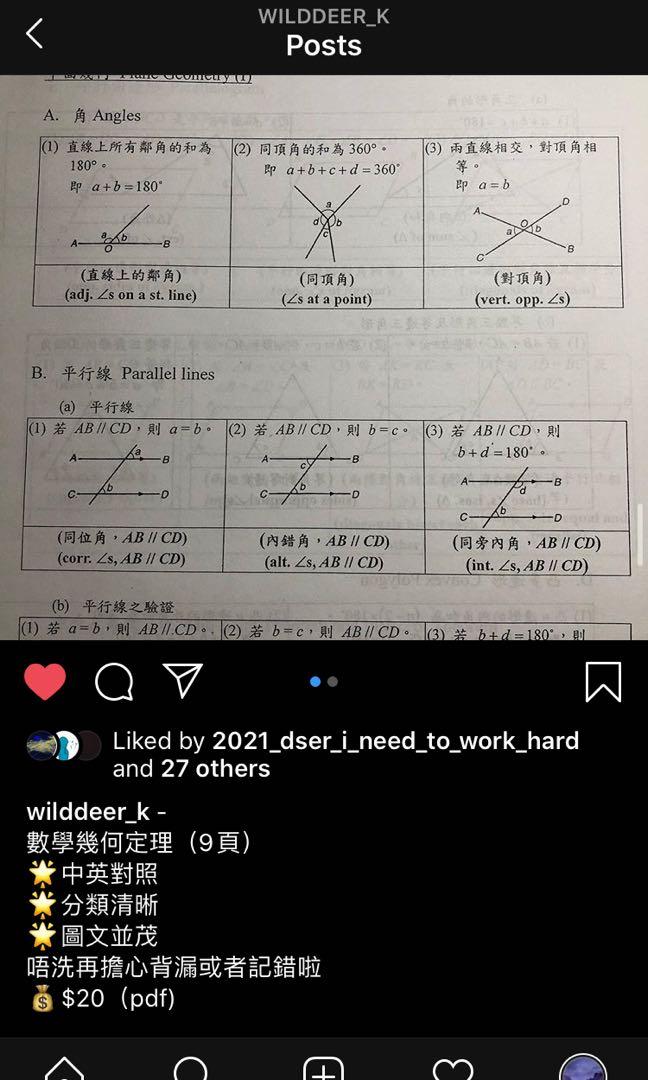 WILDDEER_K
Posts
平面幾何 Plane Geometry (1)
A. 角 Angles
(1) 直線上所有鄰角的和為
180°。
即 a + b = 180°
a
b
A
O
B
(直線上的鄰角)
(adj. ∠s on a st. line)
(2) 同頂角的和為 360°。
即 a + b + c + d = 360°
a
d
b
c
(同頂角)
(∠s at a point)
(3) 兩直線相交，對頂角相
等。
即 a = b
A
D
O
a
b
C
B
(對頂角)
(vert. opp. ∠s)
B. 平行線 Parallel lines
(a) 平行線
(1) 若 AB // CD，則 a = b。
a
A
B
b
C
D
(同位角，AB // CD)
(corr. ∠s, AB // CD)
(2) 若 AB // CD，則 b = c。
A
B
c
b
C
D
(內錯角，AB // CD)
(alt. ∠s, AB // CD)
(3) 若 AB // CD，則
b + d = 180°。
A
B
d
b
C
D
(同旁內角，AB // CD)
(int. ∠s, AB // CD)
(b) 平行線之驗證
(1) 若 a = b，則 AB // CD。
(2) 若 b = c，則 AB // CD。
(3) 若 b + d = 180°，則
Liked by 2021_dser_i_need_to_work_hard
and 27 others
wilddeer_k -
數學幾何定理（9頁）
🌟中英對照
🌟分類清晰
🌟圖文並茂
唔洗再擔心背漏或者記錯啦
💰$20（pdf)